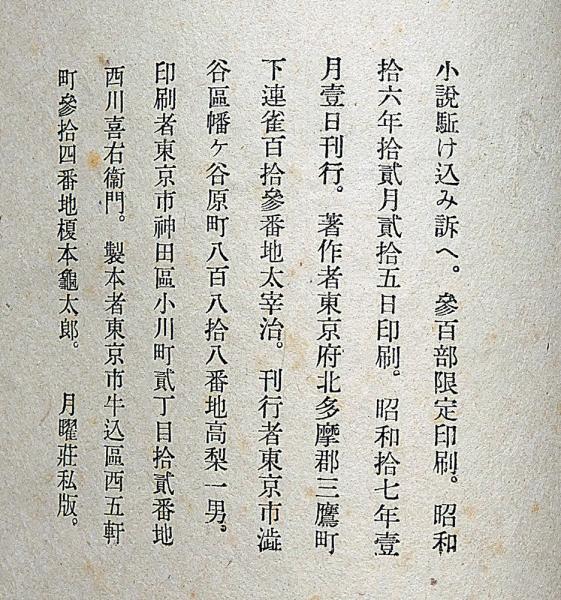 小說駈け込み訴へ。參百部限定印刷。昭和
拾六年拾貳月貳拾五日印刷。昭和拾七年壹
月壹日刊行。著作者東京府北多摩郡三鷹町
下連雀百拾參番地太宰治。刊行者東京市澁
谷區幡ヶ谷原町八百八拾八番地高梨一男。
印刷者東京市神田區小川町貳丁目拾貳番地
西川喜右衞門。製本者東京市牛込區西五軒
町參拾四番地榎本龜太郎。月曜莊私版。